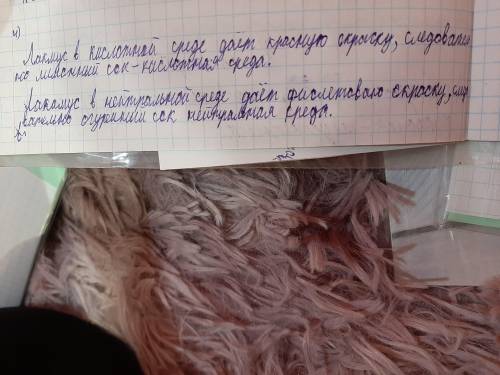 4)
Лакмус в кислотной среде дает красную окраску, следовател
но лимонный сок-кислотная среда.
Лакамус в нейтральной среде даёт фиолетоваю окраску, след
вательно огуречный сок нейтральная среда.